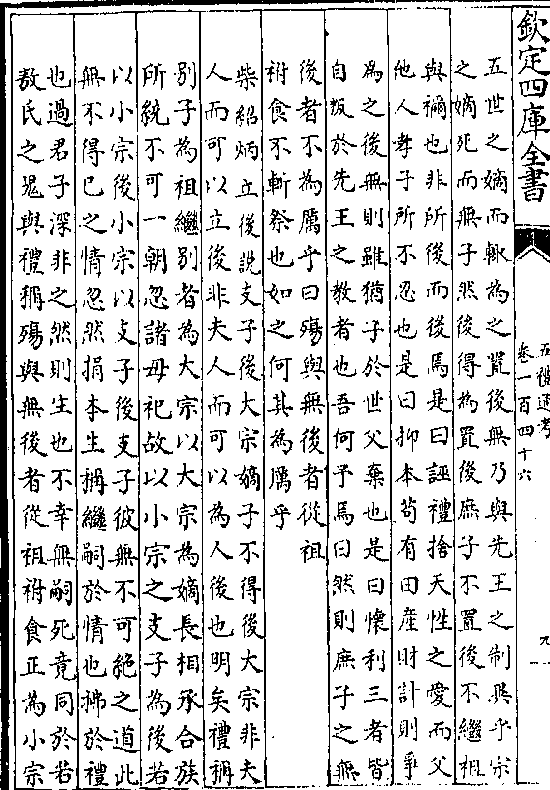 欽定四庫全書
五禮通考
卷一百四十六
九
五世之嫡而輒為之置後無乃與先王之制異乎宗
之嫡死而無子然後得為置後庶子不置後不繼祖
與禰也非所後而後焉是曰誣禮捨天性之愛而父
他人孝子所不忍也是曰抑本苟有田産財計則爭
為之後無則雖猶子於世父棄也是曰懷利三者皆
自叛於先王之教者也吾何予焉曰然則庶子之無
後者不為厲乎曰殤與無後者從祖
祔食不斬祭也如之何其為厲乎
柴紹炳立後說支子後大宗嫡子不得後大宗非夫
人而可以立後非夫人而可以為人後也明矣禮稱
别子為祖繼别者為大宗以大宗為嫡長相承合族
所統不可一朝忽諸毋祀故以小宗之支子為後若
以小宗後小宗以支子後支子彼無不可絶之道此
無不得已之情忽然捐本生稱繼嗣於情也怫於禮
也過君子深非之然則生也不幸無嗣死竟同於若
敖氏之鬼與禮稱殤與無後者從祖祔食正為小宗